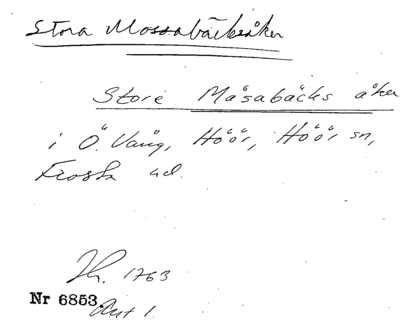 Stora Mossabäcksåker
Store Måsabäcks åker
i Ö. Vång, Höör, Höör sn,
Frosta hd.
Jh. 1763
Nr 6853. Akt 1.